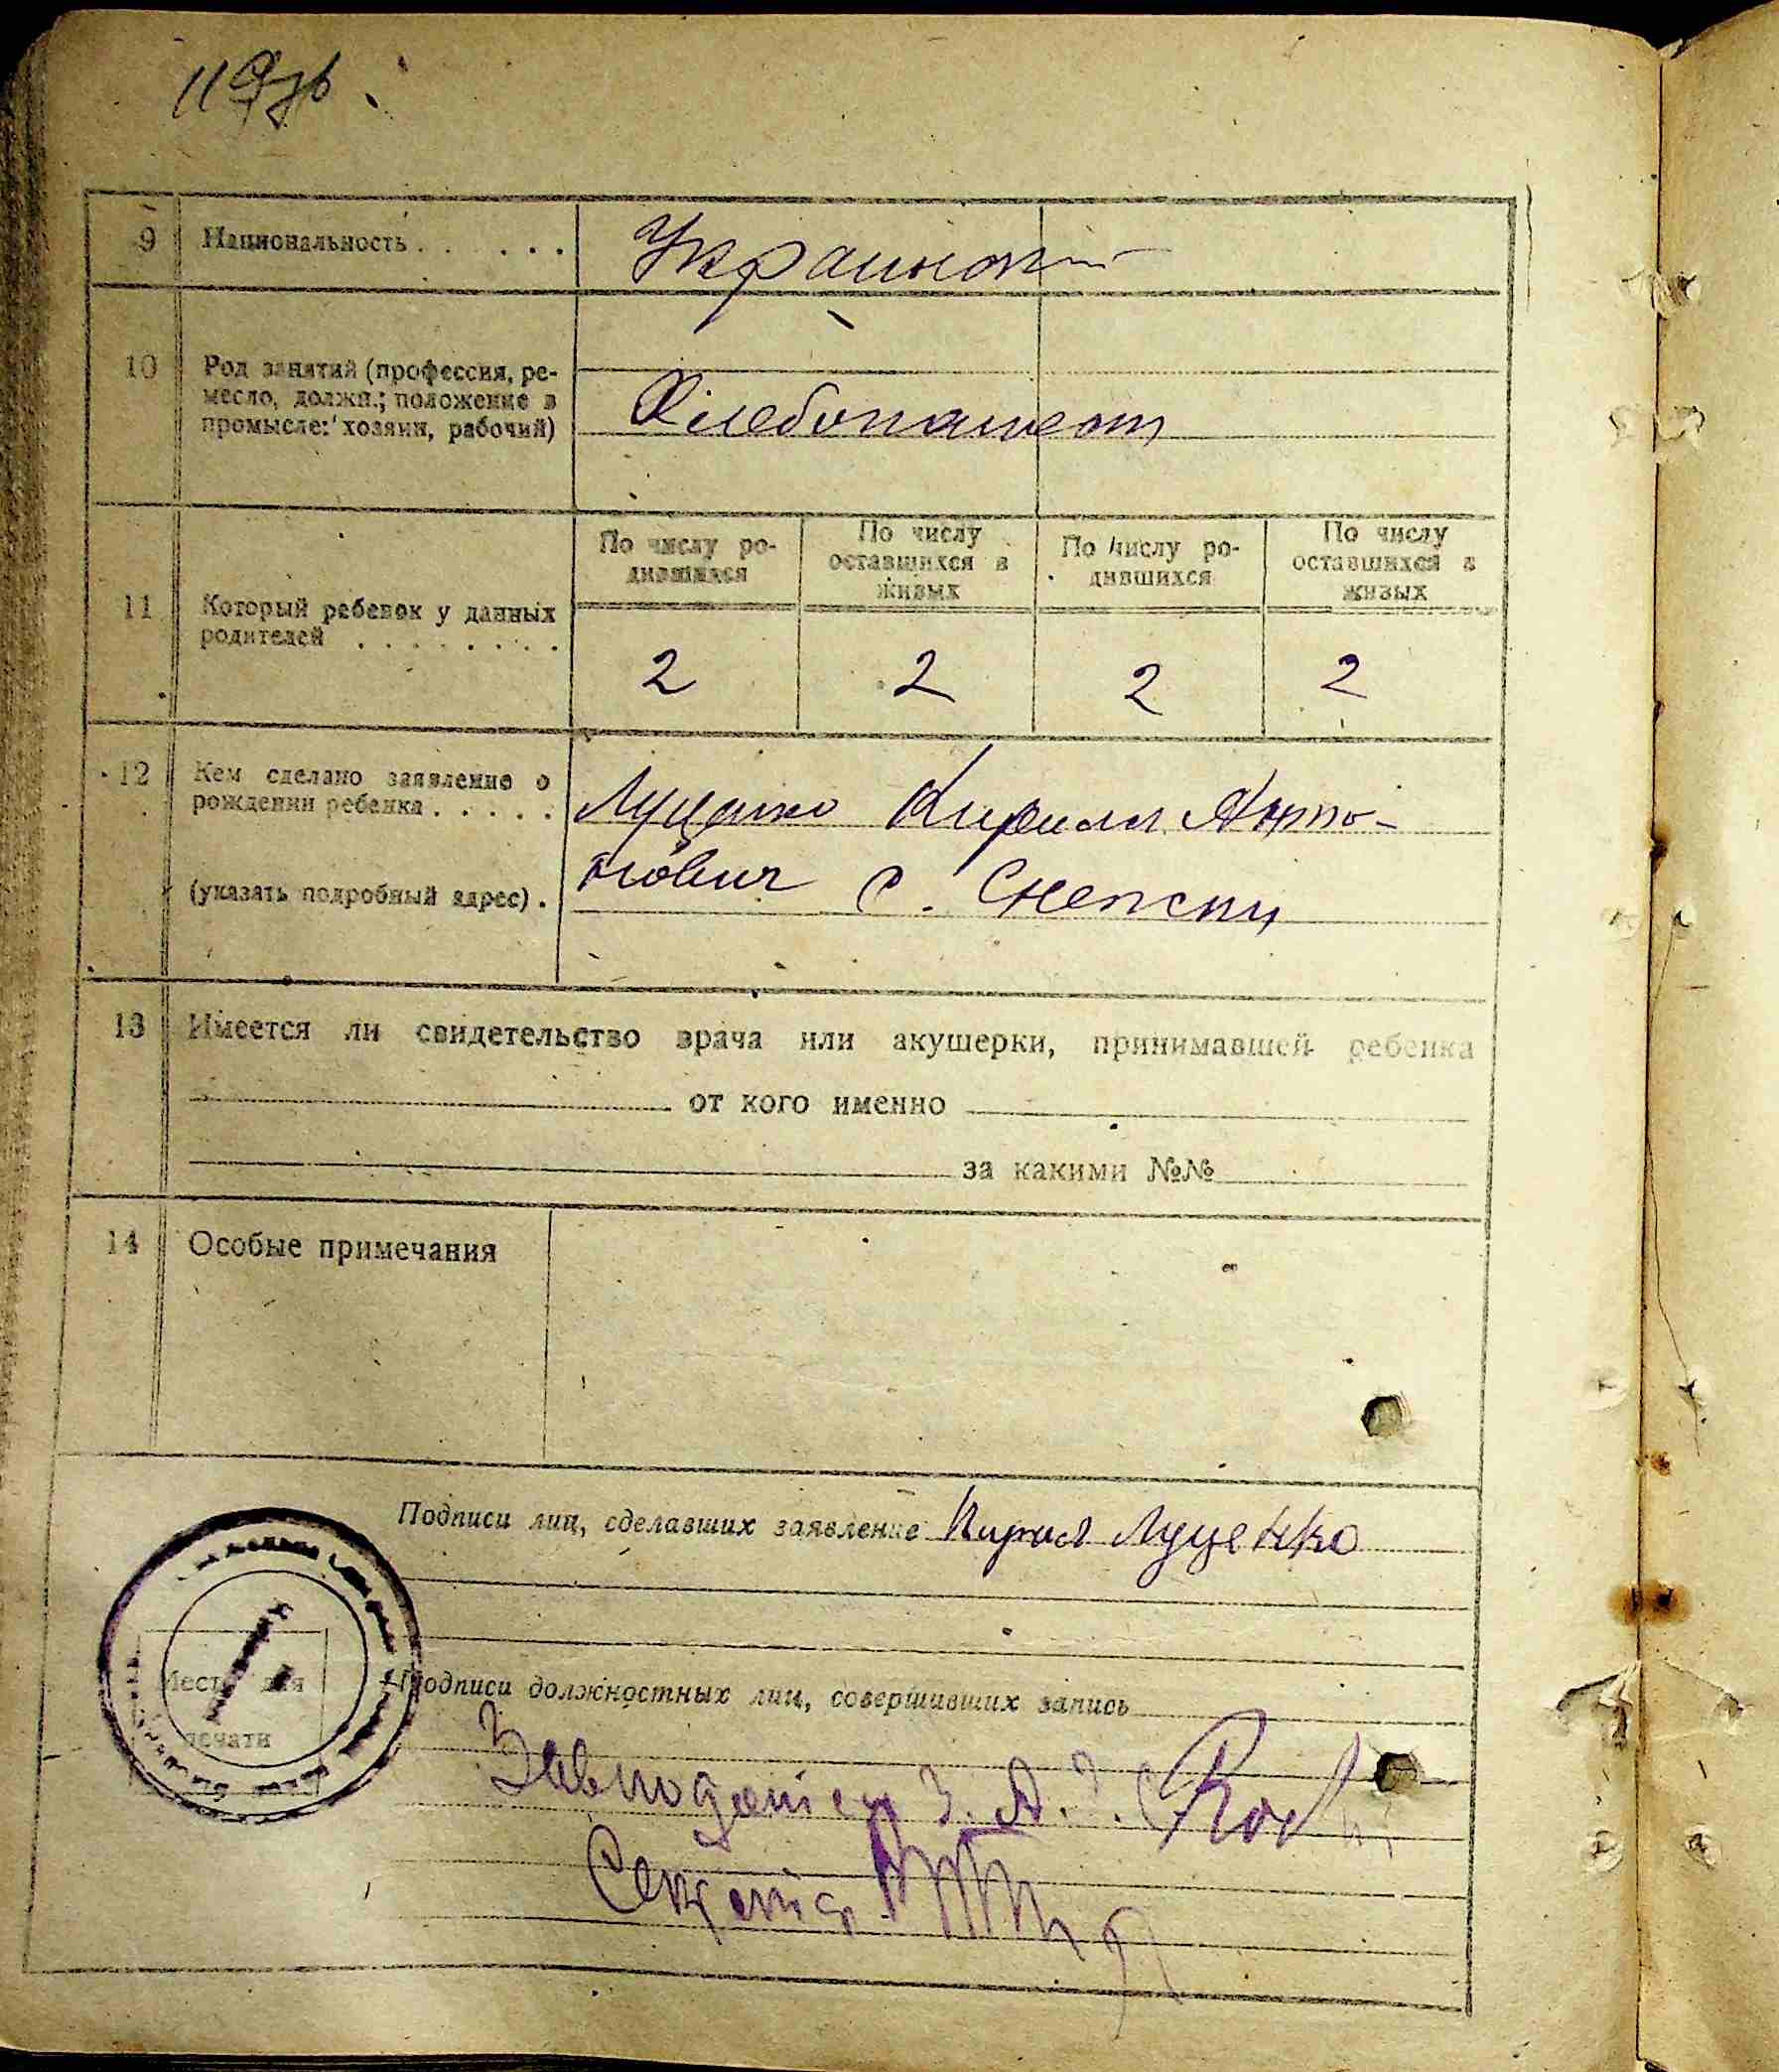 9 Национальность . . . . . . Украинский
10 Род занятий (профессия, ре-
месло, должн.; положение в
промысле: хозяин, рабочий)
Хлебопашест
11 Который ребенок у данных
родителей . . . . . . . .
По числу ро-
дившихся
По числу
оставшихся в
живых
По числу ро-
дившихся
По числу
оставшихся в
живых
2 2 2 2
12 Кем сделано заявление о
рождении ребенка . . . . .
(указать подробный адрес) .
Луценко Кирилл Анто-
нович с.
13 Имеется ли свидетельство врача или акушерки, принимавшей ребенка
от кого именно
за какими №№
14 Особые примечания
Подписи лиц, сделавших заявление Кирил Луценко
Место для
печати
Подписи должностных лиц, совершивших запись